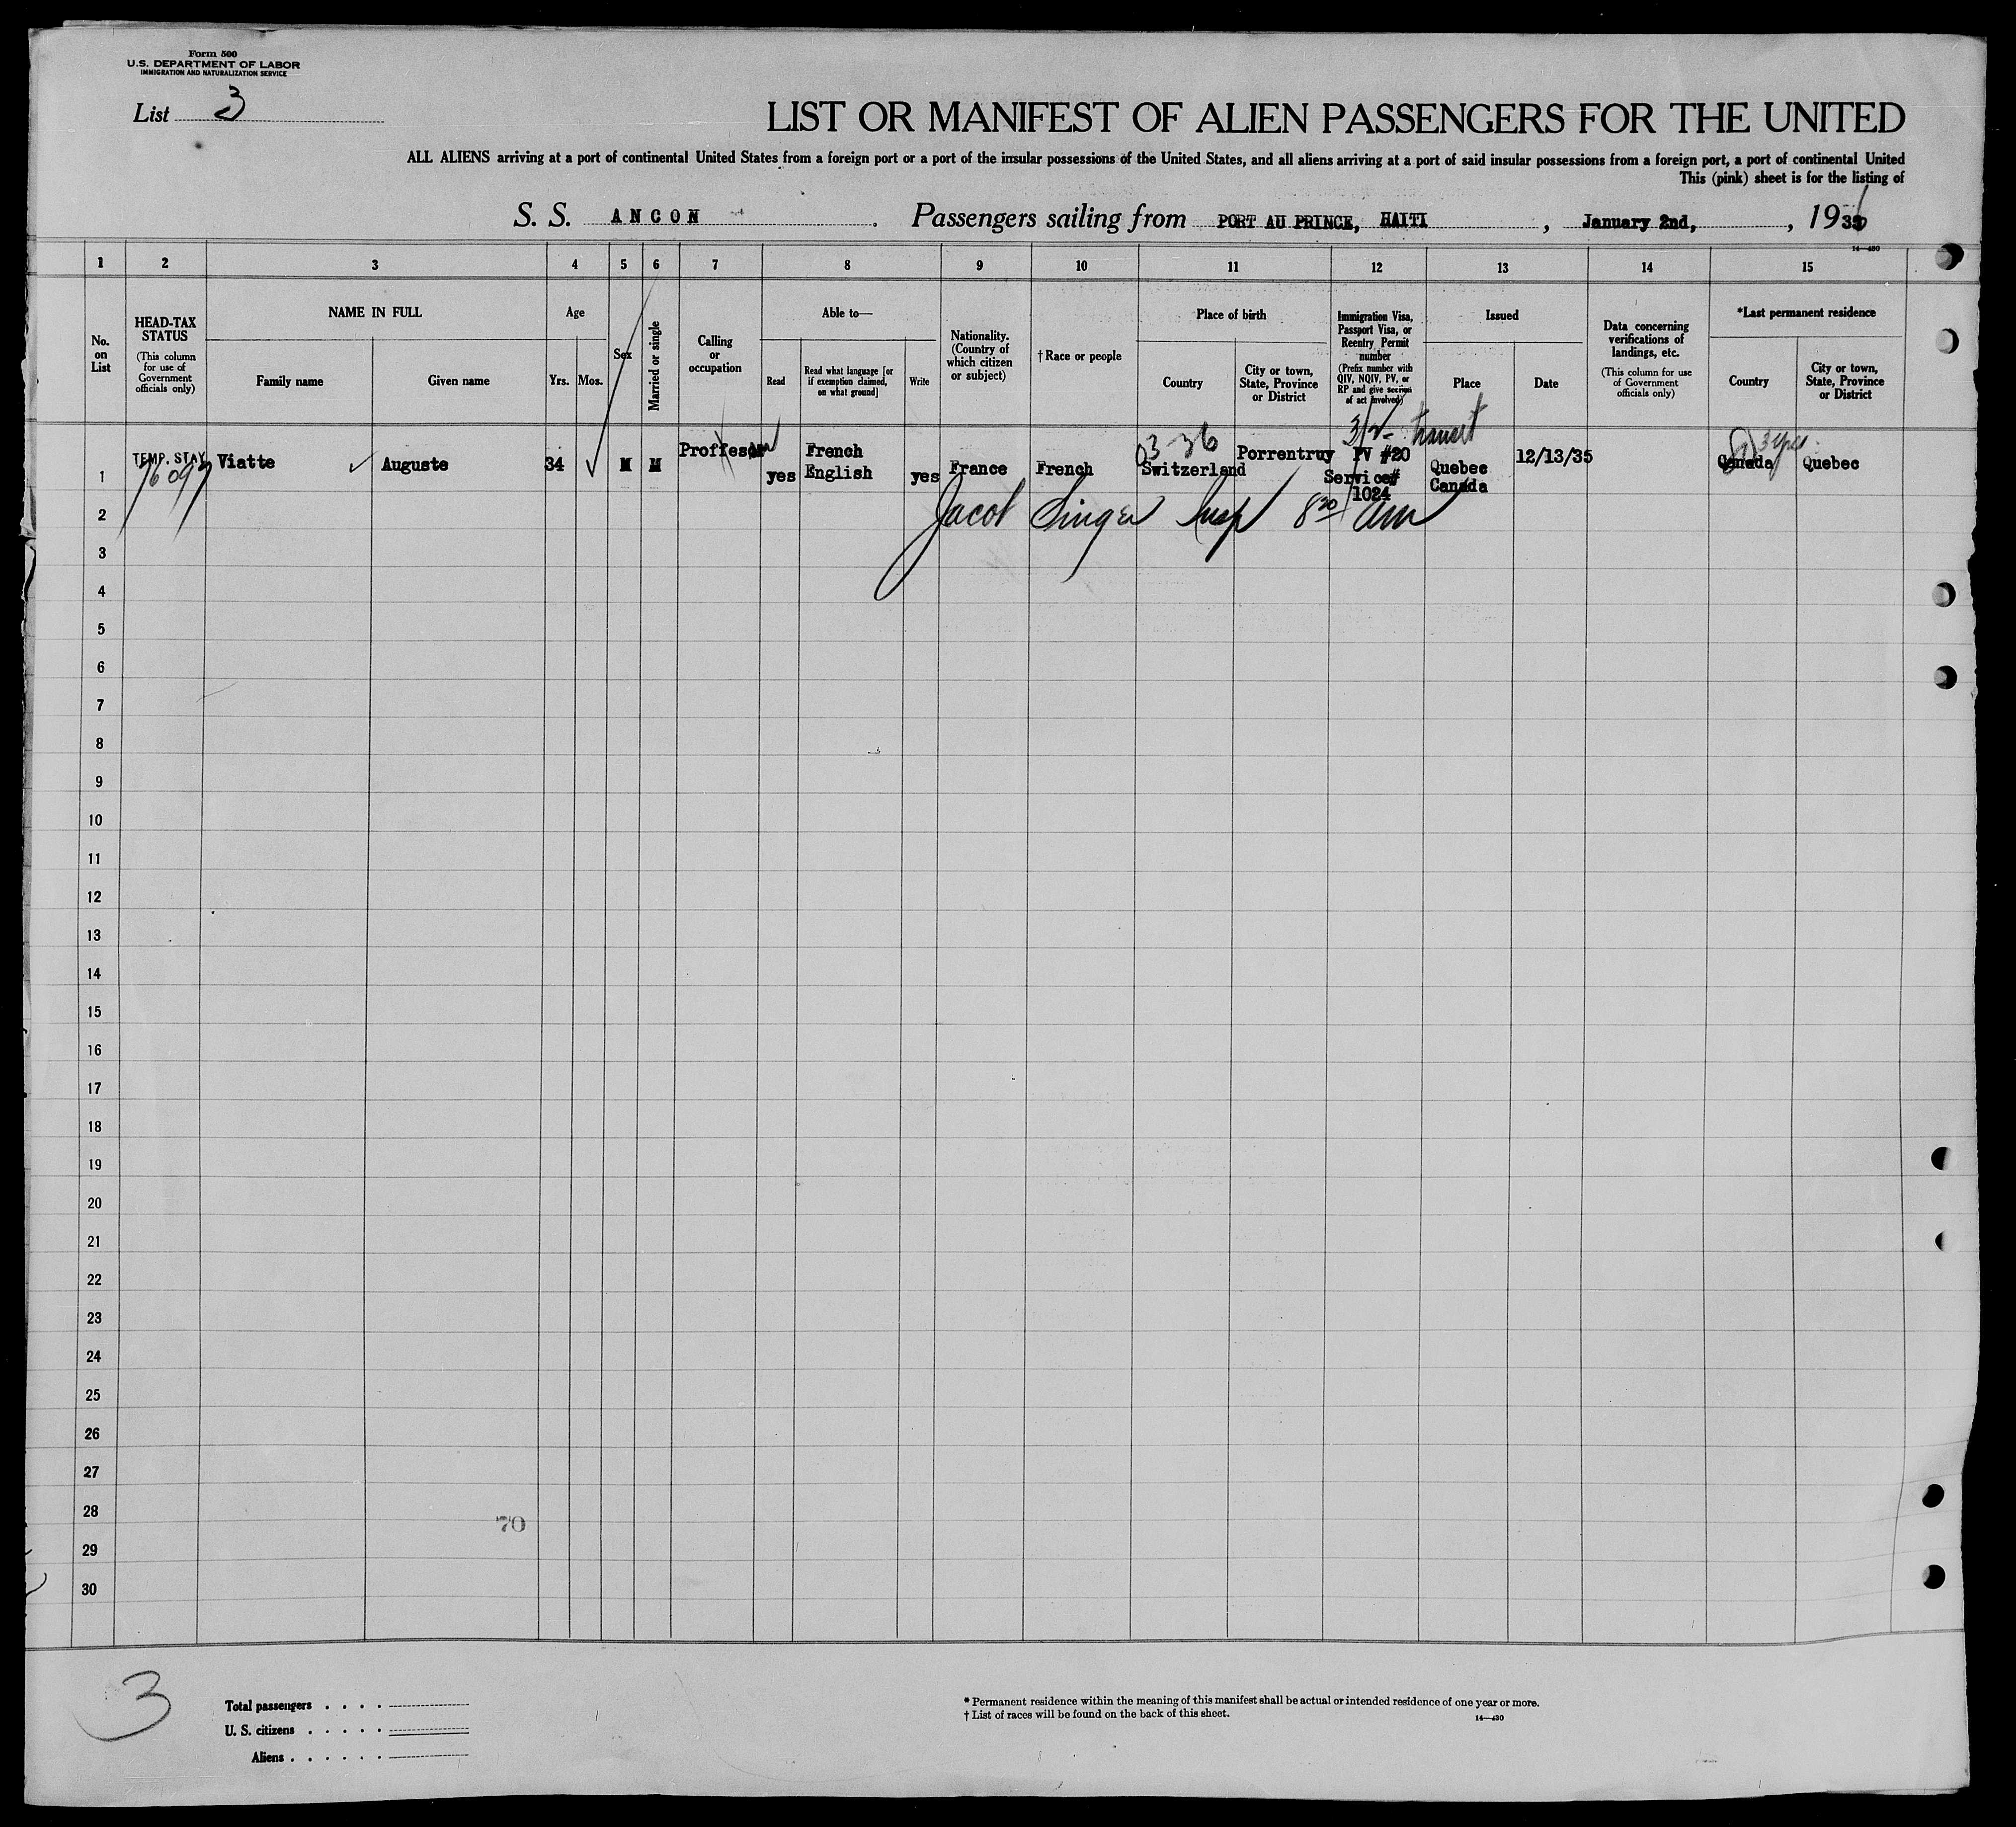 Form 500
U.S. DEPARTMENT OF LABOR
IMMIGRATION AND NATURALIZATION SERVICE
List 3
LIST OR MANIFEST OF ALIEN PASSENGERS FOR THE UNITED
ALL ALIENS arriving at a port of continental United States from a foreign port or a port of the insular possessions of the United States, and all aliens arriving at a port of said insular possessions from a foreign port, a port of continental United
This (pink) sheet is for the listing of
S. S. ANCON. Passengers sailing from PORT AU PRINCE, HAITI, January 2nd, , 1936
14—430
1 2 3 4 5 6 7 8 9 10 11 12 13 14 15
No. on List
HEAD-TAX STATUS
(This column for use of Government officials only)
NAME IN FULL
Family name
Given name
Age
Yrs.
Mos.
Sex
Married or single
Calling or occupation
Able to—
Read
Read what language [or if exemption claimed, on what ground]
Write
Nationality. (Country of which citizen or subject)
†Race or people
Place of birth
Country
City or town, State, Province or District
Immigration Visa, Passport Visa, or Reentry Permit number
(Prefix number with QIV, NQIV, PV, or RP and give section of act involved)
Issued
Place
Date
Data concerning verifications of landings, etc.
(This column for use of Government officials only)
*Last permanent residence
Country
City or town, State, Province or District
3/2- transit
03 36
3 yrs
1 TEMP. STAY Viatte Auguste 34 M M Proffesor yes French English yes France French Switzerland Porrentruy PV #20 Service# 1024 Quebec Canada 12/13/35 Canada Quebec
2 Jacob Singer Insp 8 20 am
3
4
5
6
7
8
9
10
11
12
13
14
15
16
17
18
19
20
21
22
23
24
25
26
27
28
70
29
30
3
Total passengers . . . .
U. S. citizens . . . . .
Aliens . . . . . .
* Permanent residence within the meaning of this manifest shall be actual or intended residence of one year or more.
† List of races will be found on the back of this sheet.
14—430